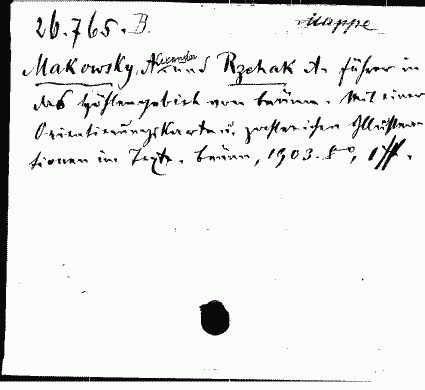 26.765. B. Mappe
Makowsky, Alexander und Rzehak A. Führer in
das Höhlengebiet von Brünn. Mit einer
Orientierungskarte u. zahlreichen Illustra-
tionen im Texte. Brünn, 1903. 8°,